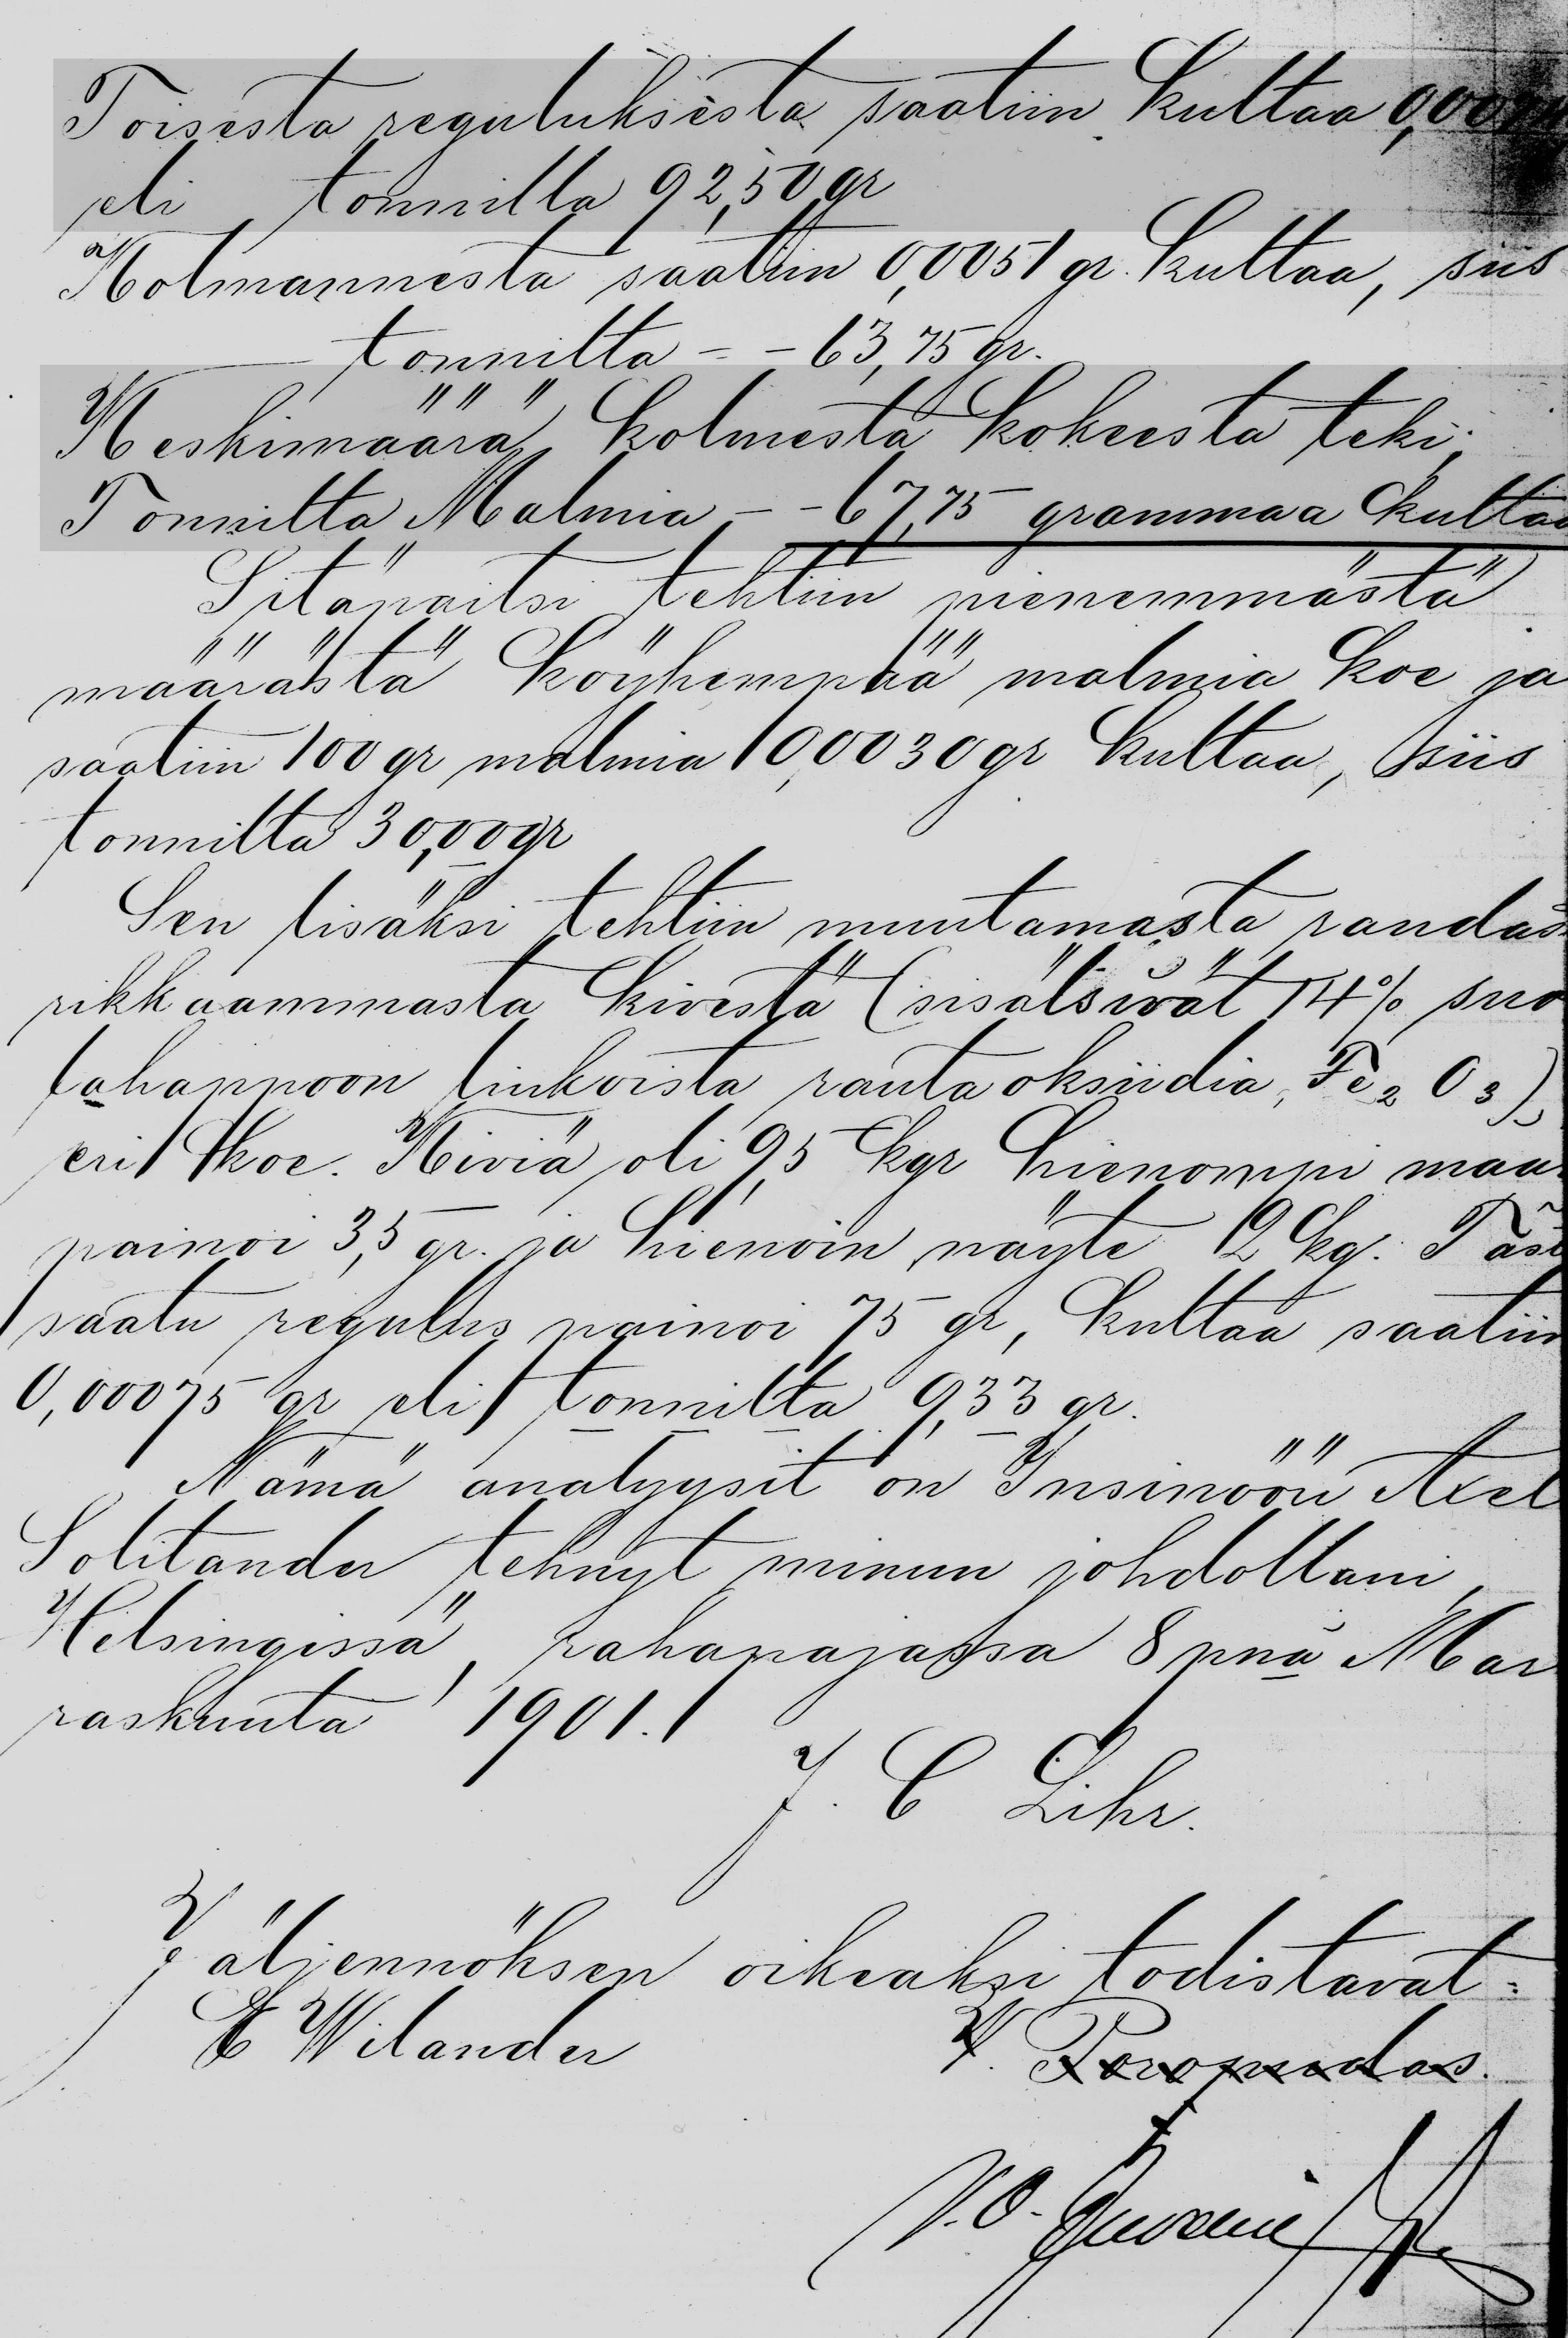 Toisesta reguluksesta saatiin kultaa
eli tonnilla 92,50 gr
Kolmannesta saatiin 0,0051 gr. kultaa, siis
tonnilta - - 63,75 gr.
Keskimäärä kolmesta kokeesta teki;
Tonnilta Malmia - - 67,75 grammaa kultaa
Sitäpaitsi tehtiin pienemmästä
määrästä köyhempää malmia koe ja
saatiin 100 gr malmia 0,0030 gr kultaa, siis
tonnilta 30,00 gr
Sen lisäksi tehtiin muutamasta
rikkaammasta kivestä (sisälsivät 14% suo
lahappoon liukoista rauta oksiidia, Fe2 O3),
eri koe. Kiviä oli 9,5 kgr hienompi
painoi 3,5 gr. ja hienoin näyte 2 kg.
saatu regulus painoi 75 gr, kultaa saatiin
0,00075 gr eli tonnilta 9,33 gr.
Nämä analyysit on Insinööri Axel
Solitander tehnyt minun johdollani,
Helsingissä, rahapajassa 8 pnä Mar
raskuuta 1901.
J. C Lihr.
Jäljennöksen oikeaksi todistavat:
E Wilander